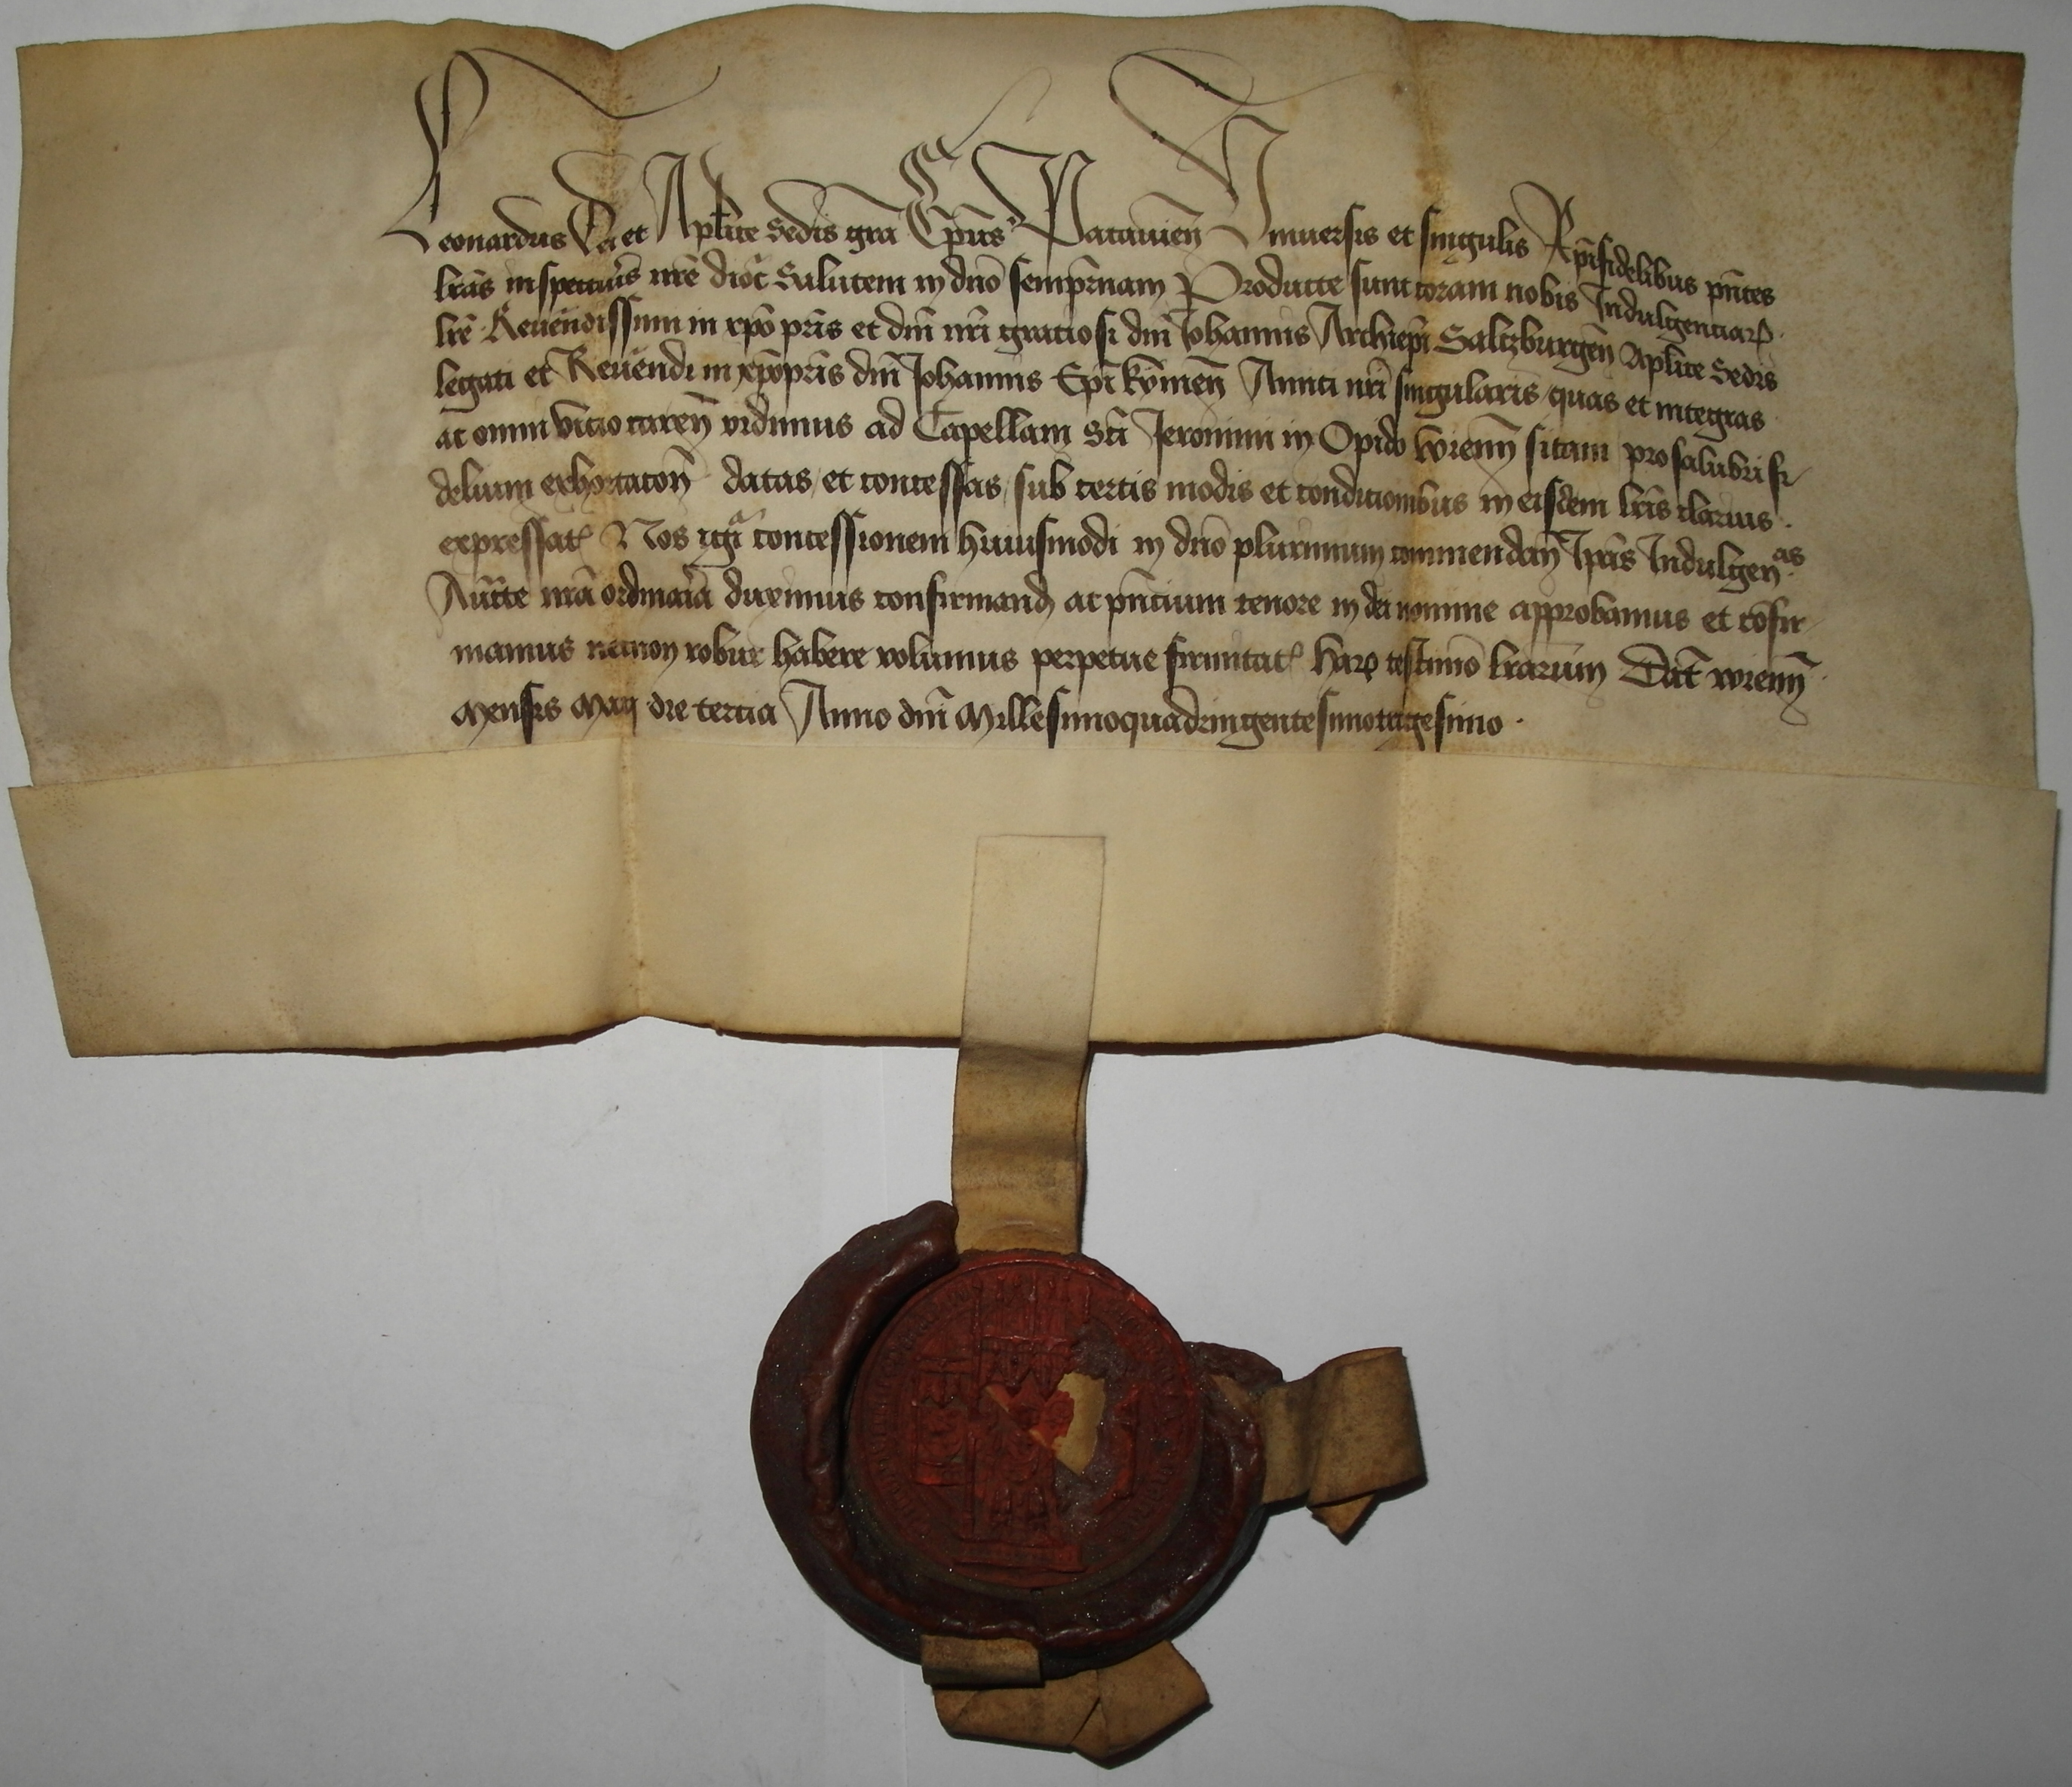 Leonardus Dei et Aplīce Sedis grā Ep̄us Patavieñ Vniuersis et singulis Xp̄ifidelibus pñtes
lrās inspecturis nrē dioc̄ Salutem in dnō sempr̄nam Producte sunt coram nobis Indulgenciarꝝ
lrē Reuēndissimi in xp̄o pr̄is et dnī nrī graciosi dnī Johannis Archiep̄i Saltzburgeñ Aplīce Sedis
legati et Reuēndi in xp̄o pr̄is dnī Johannis Ep̄i kỹmeñ Amici nrī singularis quas et integras
ac omni vicio careñ vidimus ad Capellam Sc̄i Jeronimi in Opido wienñ sitam pro salubri fi
delium exhortacoñ datas et concessas sub certis modis et condicionibus in eisdem lrīs clarius
expressat͛ Nos igr̄ concessionem huiusmodi in dnō plurimum commendañ Ip̄as Indulgen͛ᵃˢ
Auc̄te nrā ordinar̄ia duximus confirmand͛ ac pñcium tenore in dei nomine approbamus et cōfir
mamus necnon robur habere volumus perpetue firmitat͛ harꝝ testimō lrārum Dat̄ wienñ
Mensis Maij die tercia Anno dnī Millesimoquadringentesimotrigesimo